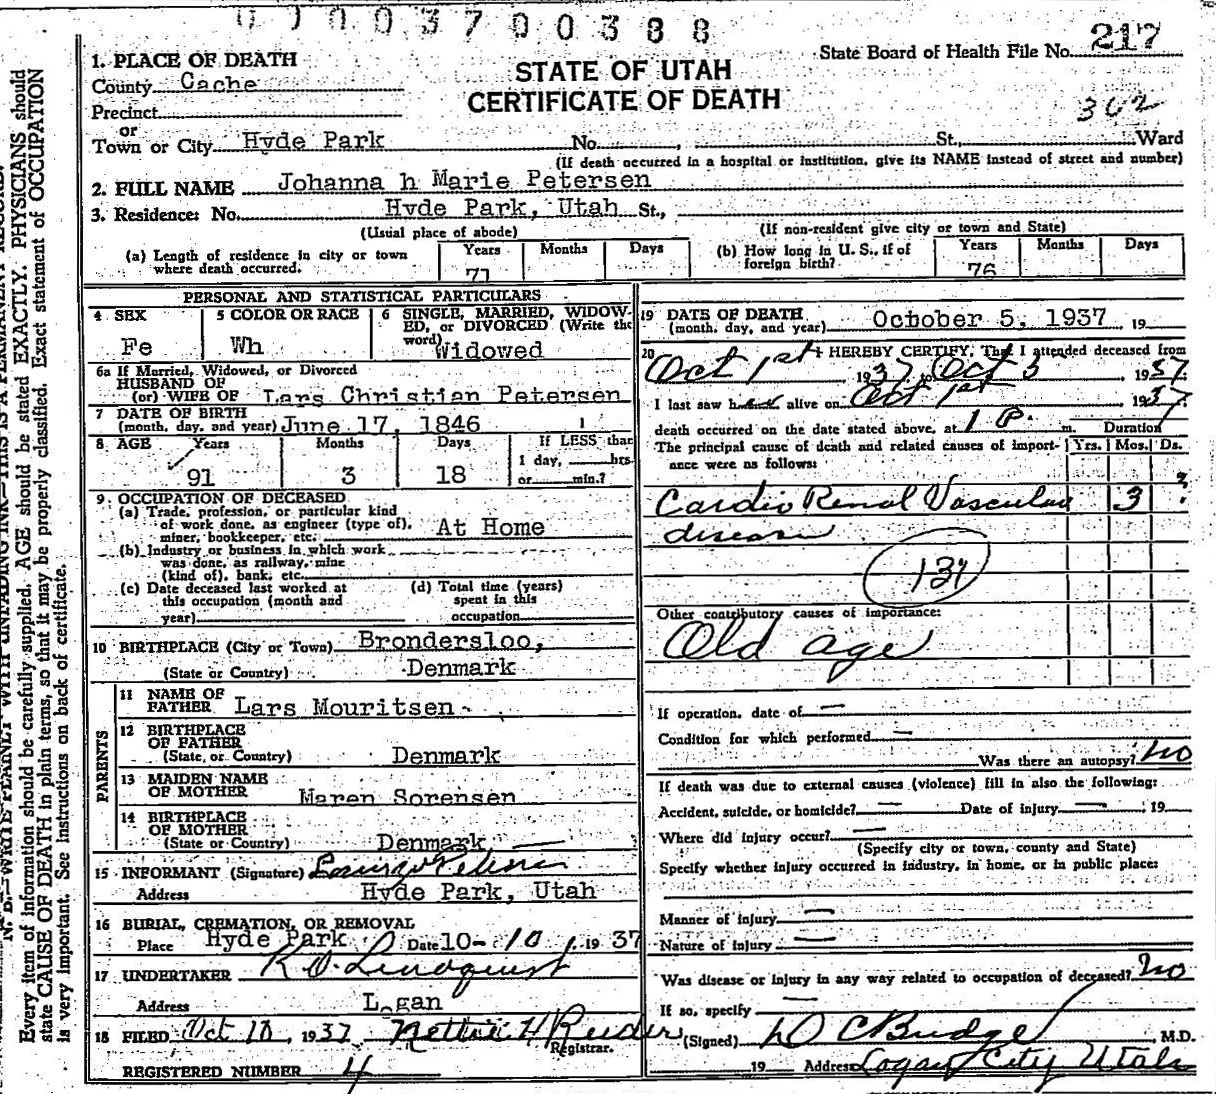 0 1 0 0 3 7 0 0 3 8 8
State Board of Health File No. 217
STATE OF UTAH
CERTIFICATE OF DEATH
362
1. PLACE OF DEATH
County Cache
Precinct
or
Town or City Hyde Park No. , St., Ward
(If death occurred in a hospital or institution, give its NAME instead of street and number)
2. FULL NAME Johanna h Marie Petersen
3. Residence: No. Hyde Park, Utah St.,
(Usual place of abode) (If non-resident give city or town and State)
(a) Length of residence in city or town where death occurred. Years 71 Months Days
(b) How long in U. S., if of foreign birth? Years 76 Months Days
PERSONAL AND STATISTICAL PARTICULARS
4 SEX Fe
5 COLOR OR RACE Wh
6 SINGLE, MARRIED, WIDOWED, or DIVORCED (Write the word) Widowed
6a If Married, Widowed, or Divorced
HUSBAND OF
(or) WIFE OF Lars Christian Petersen
7 DATE OF BIRTH
(month, day, and year) June 17, 1846
8 AGE Years 91 Months 3 Days 18 If LESS than 1 day, hrs. or min.?
9. OCCUPATION OF DECEASED
(a) Trade, profession, or particular kind
of work done, as engineer (type of),
miner, bookkeeper, etc. At Home
(b) Industry or business in which work
was done, as railway, mine
(kind of), bank, etc.
(c) Date deceased last worked at
this occupation (month and
year)
(d) Total time (years)
spent in this
occupation
10 BIRTHPLACE (City or Town) Brondersloo,
(State or Country) Denmark
PARENTS
11 NAME OF
FATHER Lars Mouritsen
12 BIRTHPLACE
OF FATHER
(State, or Country) Denmark
13 MAIDEN NAME
OF MOTHER Maren Sorensen
14 BIRTHPLACE
OF MOTHER
(State or Country) Denmark
15 INFORMANT (Signature)
Address Hyde Park, Utah
16 BURIAL, CREMATION, OR REMOVAL
Place Hyde Park Date 10- 10, 1937
17 UNDERTAKER R O Lindquist
Address Logan
18 FILED Oct 10, 1937 Nettie H Reeder
Registrar.
REGISTERED NUMBER 4
19 DATE OF DEATH
(month, day, and year) October 5, 1937 , 19
20 I HEREBY CERTIFY, That I attended deceased from
Oct 1st 1937 to Oct 5 1937
I last saw her alive on Oct 1st 1937
death occurred on the date stated above, at 1 P. m. Duration
The principal cause of death and related causes of importance were as follows: Yrs. Mos. Ds.
Cardio Renal Vascular 3 ?
disease
131
Other contributory causes of importance:
Old age
If operation, date of —
Condition for which performed —
Was there an autopsy? no
If death was due to external causes (violence) fill in also the following:
Accident, suicide, or homicide? — Date of injury — 19
Where did injury occur? —
(Specify city or town, county and State)
Specify whether injury occurred in industry, in home, or in public place:
Manner of injury —
Nature of injury —
Was disease or injury in any way related to occupation of deceased? no
If so, specify —
(Signed) D C Budge M.D.
19 Address Logan City Utah
N. B.—WRITE PLAINLY WITH UNFADING INK—THIS IS A PERMANENT RECORD.
Every item of information should be carefully supplied. AGE should be stated EXACTLY. PHYSICIANS should
state CAUSE OF DEATH in plain terms, so that it may be properly classified. Exact statement of OCCUPATION
is very important. See instructions on back of certificate.